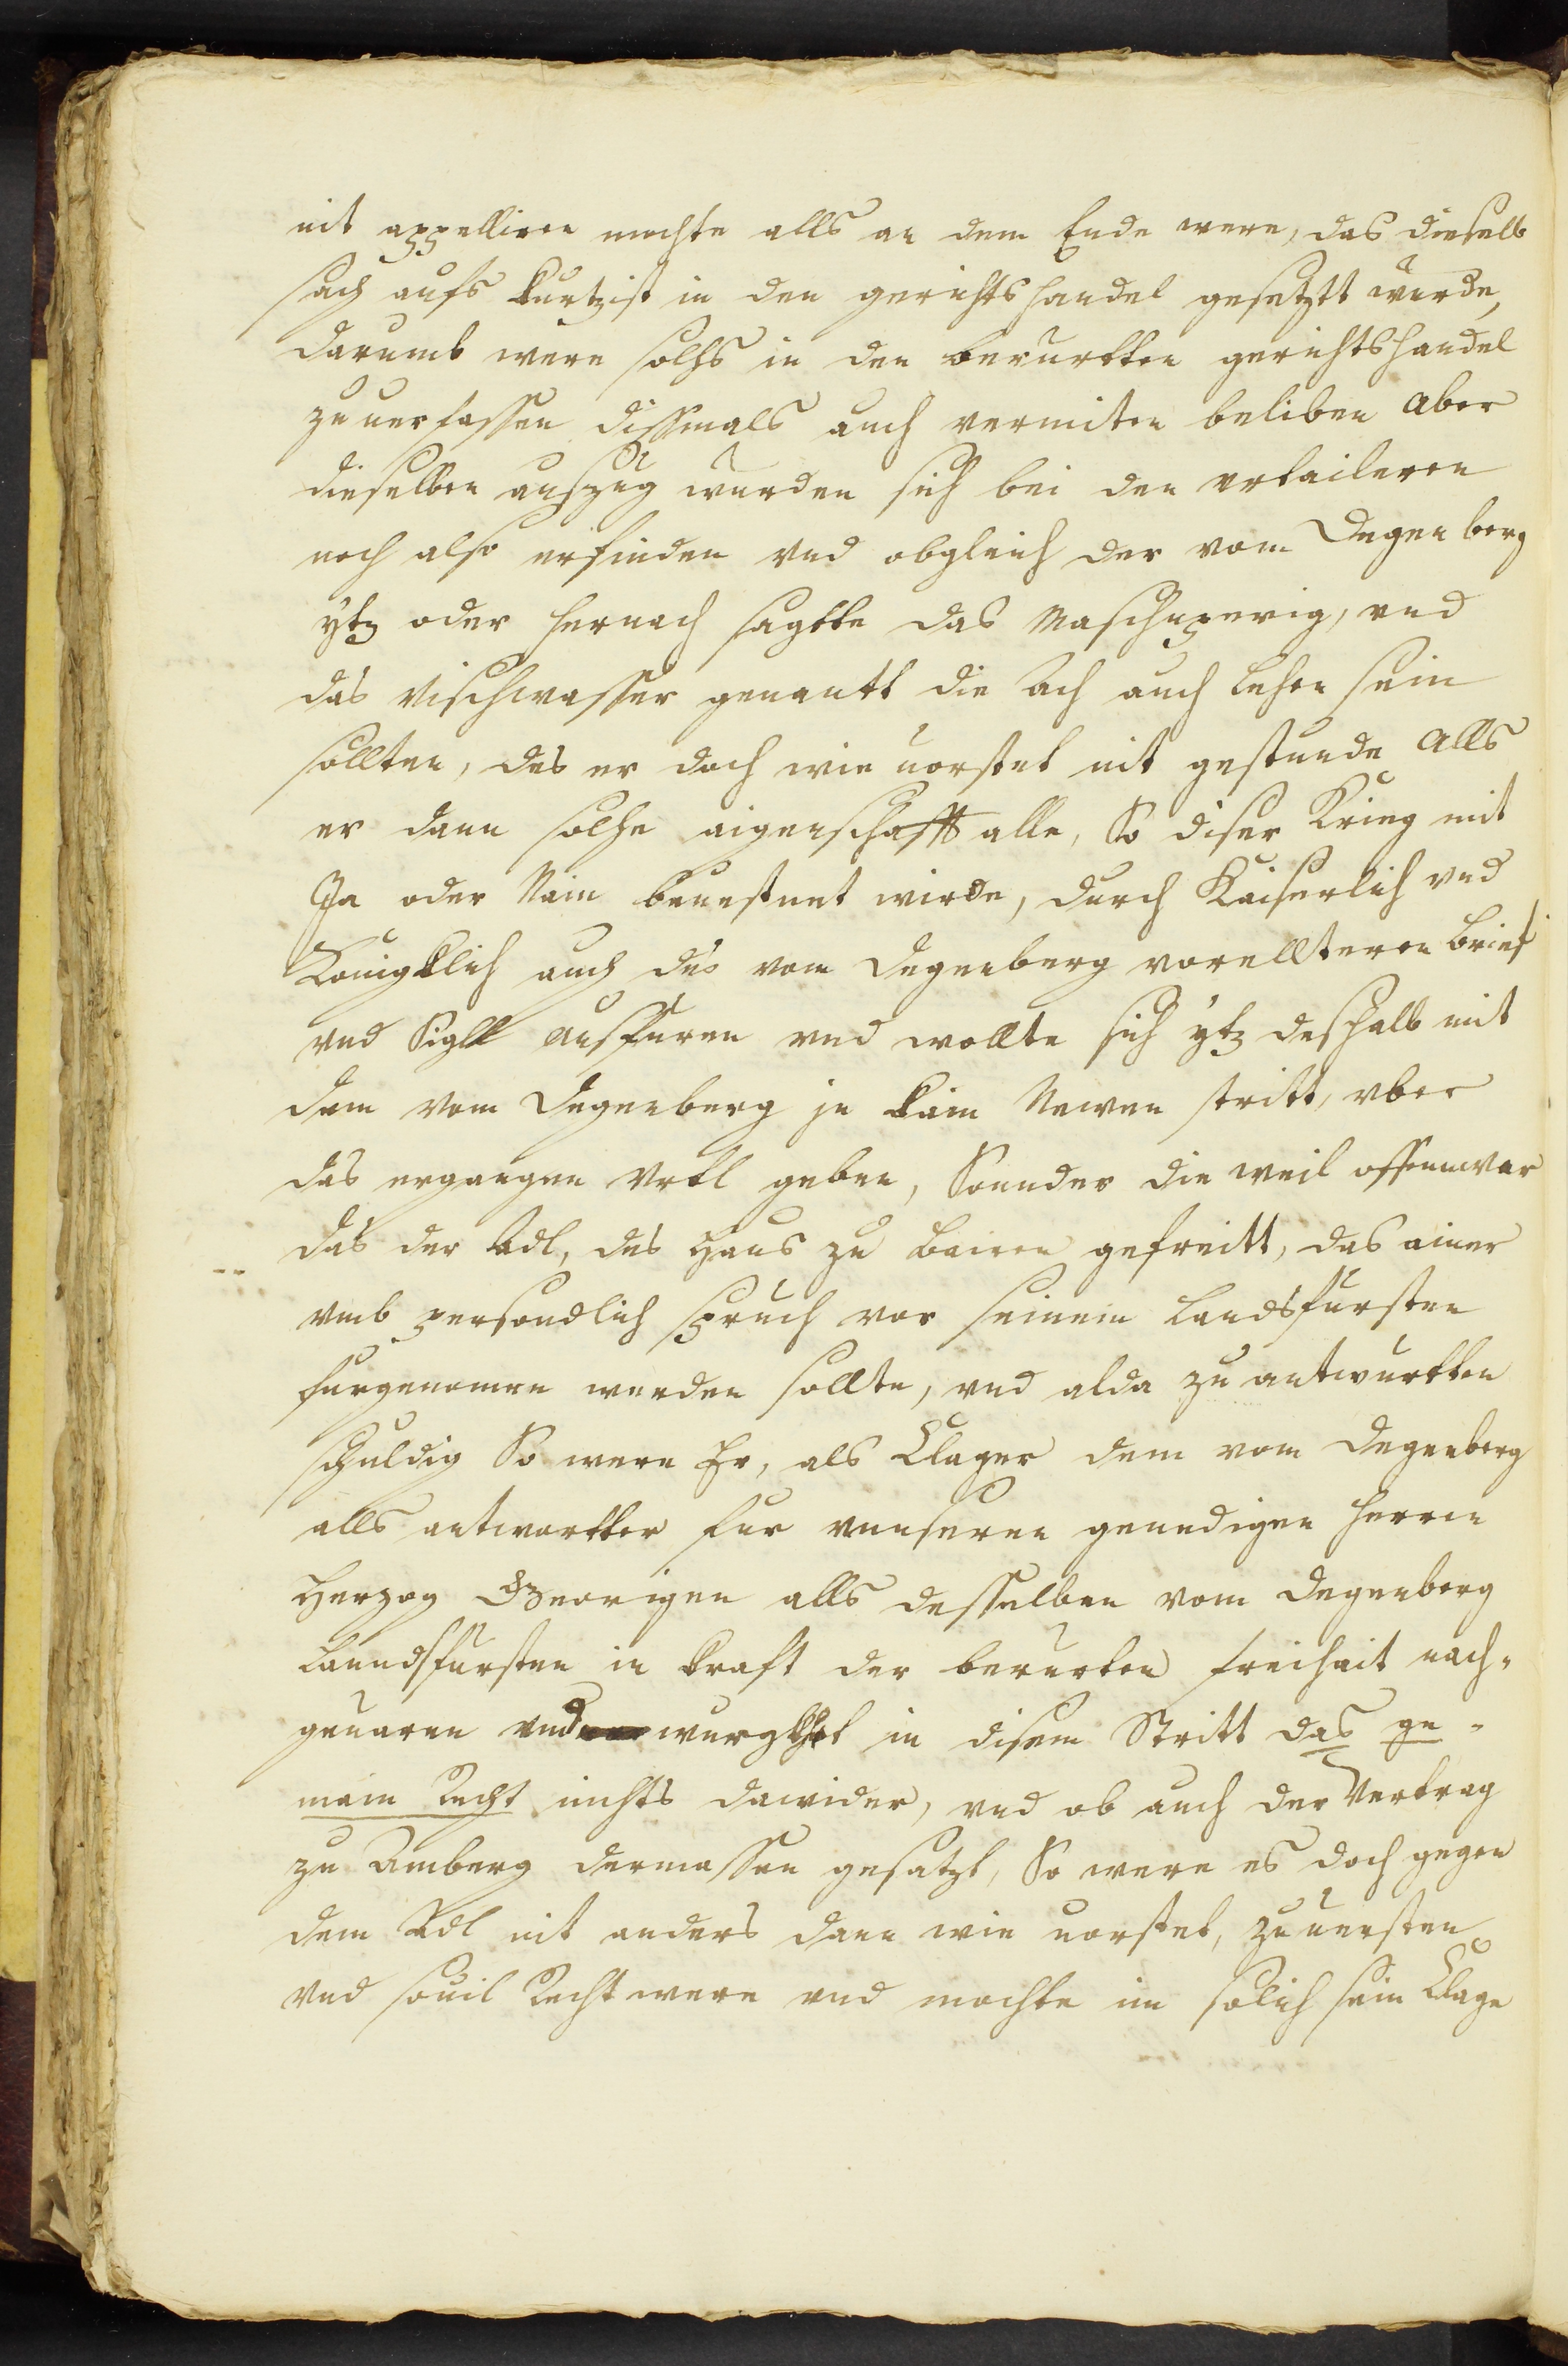 nit appelliren mochte alls an dem Ende were, das dieselb
sach aufs kurtzist in den gerichtshandel gesetztt wurde,
darumb were solhs in den berurtten gerichtshandel
zuuerfassen dissmals auch vermiten beliben aber
dieselben auszug wurden sich bei den urtaileren
noch also erfinden vnd obgleich der vom Degenberg
ytz oder hernach sagtte das Maschnperig, vnd
das vischwasser genantt die Ach auch lehen sein
sollten, des er doch wie uorstet nit gestunde Alls
er dann solhe aigenschafft alle, So diser Krieg mit
Ja oder Nein beuestnet wirde, durch Kaiserlich vnd
Konigklich auch des vom Degenberg vorellteren brief
vnd Sigll ausfuren vnd wollte sich ytz deshalb mit
dem vom Degenberg je kain Newen stritt, vber
das ergangen Vrtl geben, Sonnder die weil offennwar
das der Adl, des Haus zu Bairen gefreitt, das ainer
vmb persondlich spruch vor seinem Landsfursten
furgenomen werden sollte, vnd alda zu antwurtten
schuldig So were Er, als Clager dem vom Degenberg
alls antwortter fur vnnseren genedigen Herren
Herzog Georigen alls desselben vom Degenberg
Lanndsfursten in kraft der berurten freihait nach-
geuaren vnd in disem Stritt das ge-
main Recht nichts dawider, vnd ob auch der Vertrag
zu Amberg dermassen gesatzt, So were es doch gegen
dem Adl nit anders dann wie uorstet, zuuersten
vnd souil Recht were vnd mochte im solich sein Clage